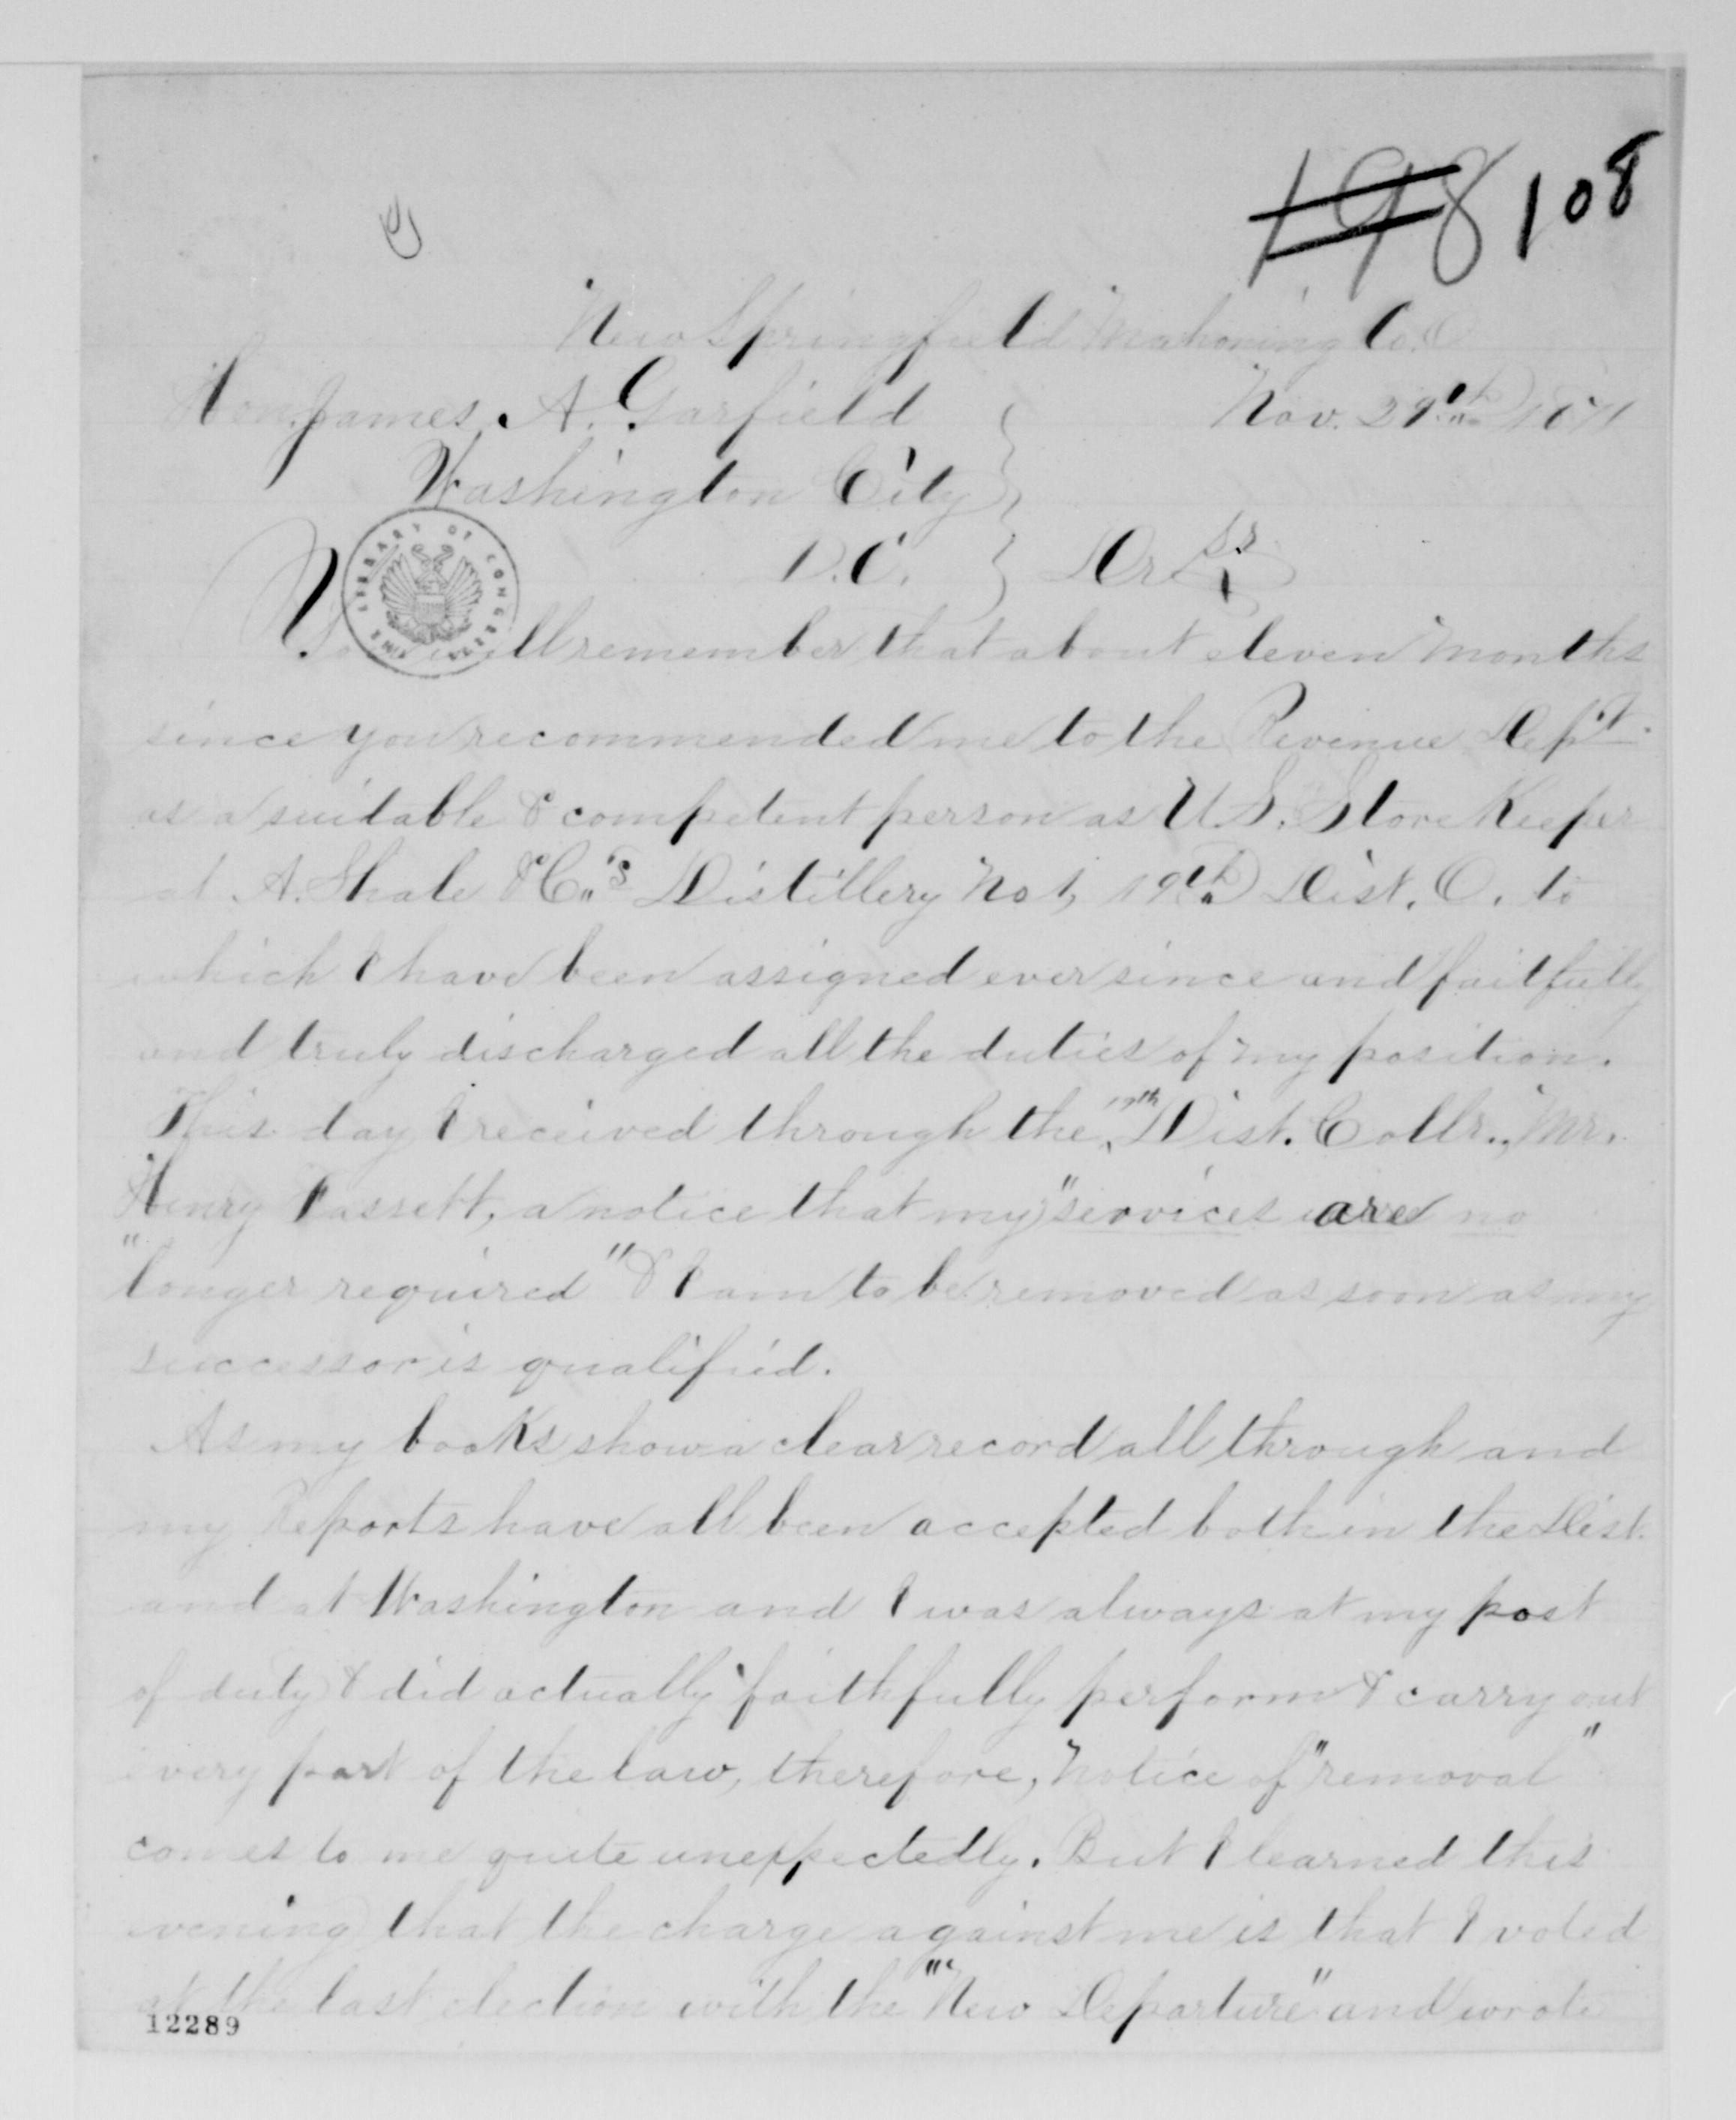 198 108
New Springfield Mahoning Co. O
Hon. James A. Garfield
Nov. 29th 1871
Washington City
D.C. Dr Sr
LIBRARY OF CONGRESS
You will remember that about eleven months
since you recommended me to the Revenue Dept.
as a suitable & competent person as U.S. Store Keeper
at A. Shale & Co's Distillery No 1, 19th Dist. O. to
which I have been assigned ever since and faitfully
and truly discharged all the duties of my position.
This day I received through the 19th Dist. Collr., Mr.
Henry Fassett, a notice that my "services are no
"longer required" & I am to be removed as soon as my
successor is qualified.
As my books show a clear record all through and
my Reports have all been accepted both in the Dist.
and at Washington and I was always at my post
of duty & did actually faithfully perform & carry out
every part of the law, therefore, notice of "removal"
comes to me quite unexpectedly. But I learned this
evening that the charge against me is that I voted
at the last election with the "New Departure" and wrote
12289